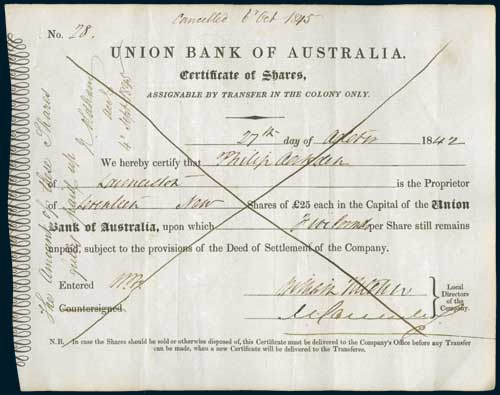 Cancelled 6 Oct 1845
No. 28.
UNION BANK OF AUSTRALIA.
Certificate of Shares,
ASSIGNABLE BY TRANSFER IN THE COLONY ONLY.
27th day of 1842
We hereby certify that Philip
of Launceston is the Proprietor
of Seventeen New Shares of £25 each in the Capital of the Union
Bank of Australia, upon which per Share still remains
unpaid, subject to the provisions of the Deed of Settlement of the Company.
Entered
Countersigned
Local Directors of the Company.
N.B. In case the Shares should be sold or otherwise disposed of, this Certificate must be delivered to the Company's Office before any Transfer
can be made, when a new Certificate will be delivered to the Transferee.
The Amount of these Shares
paid up
1845